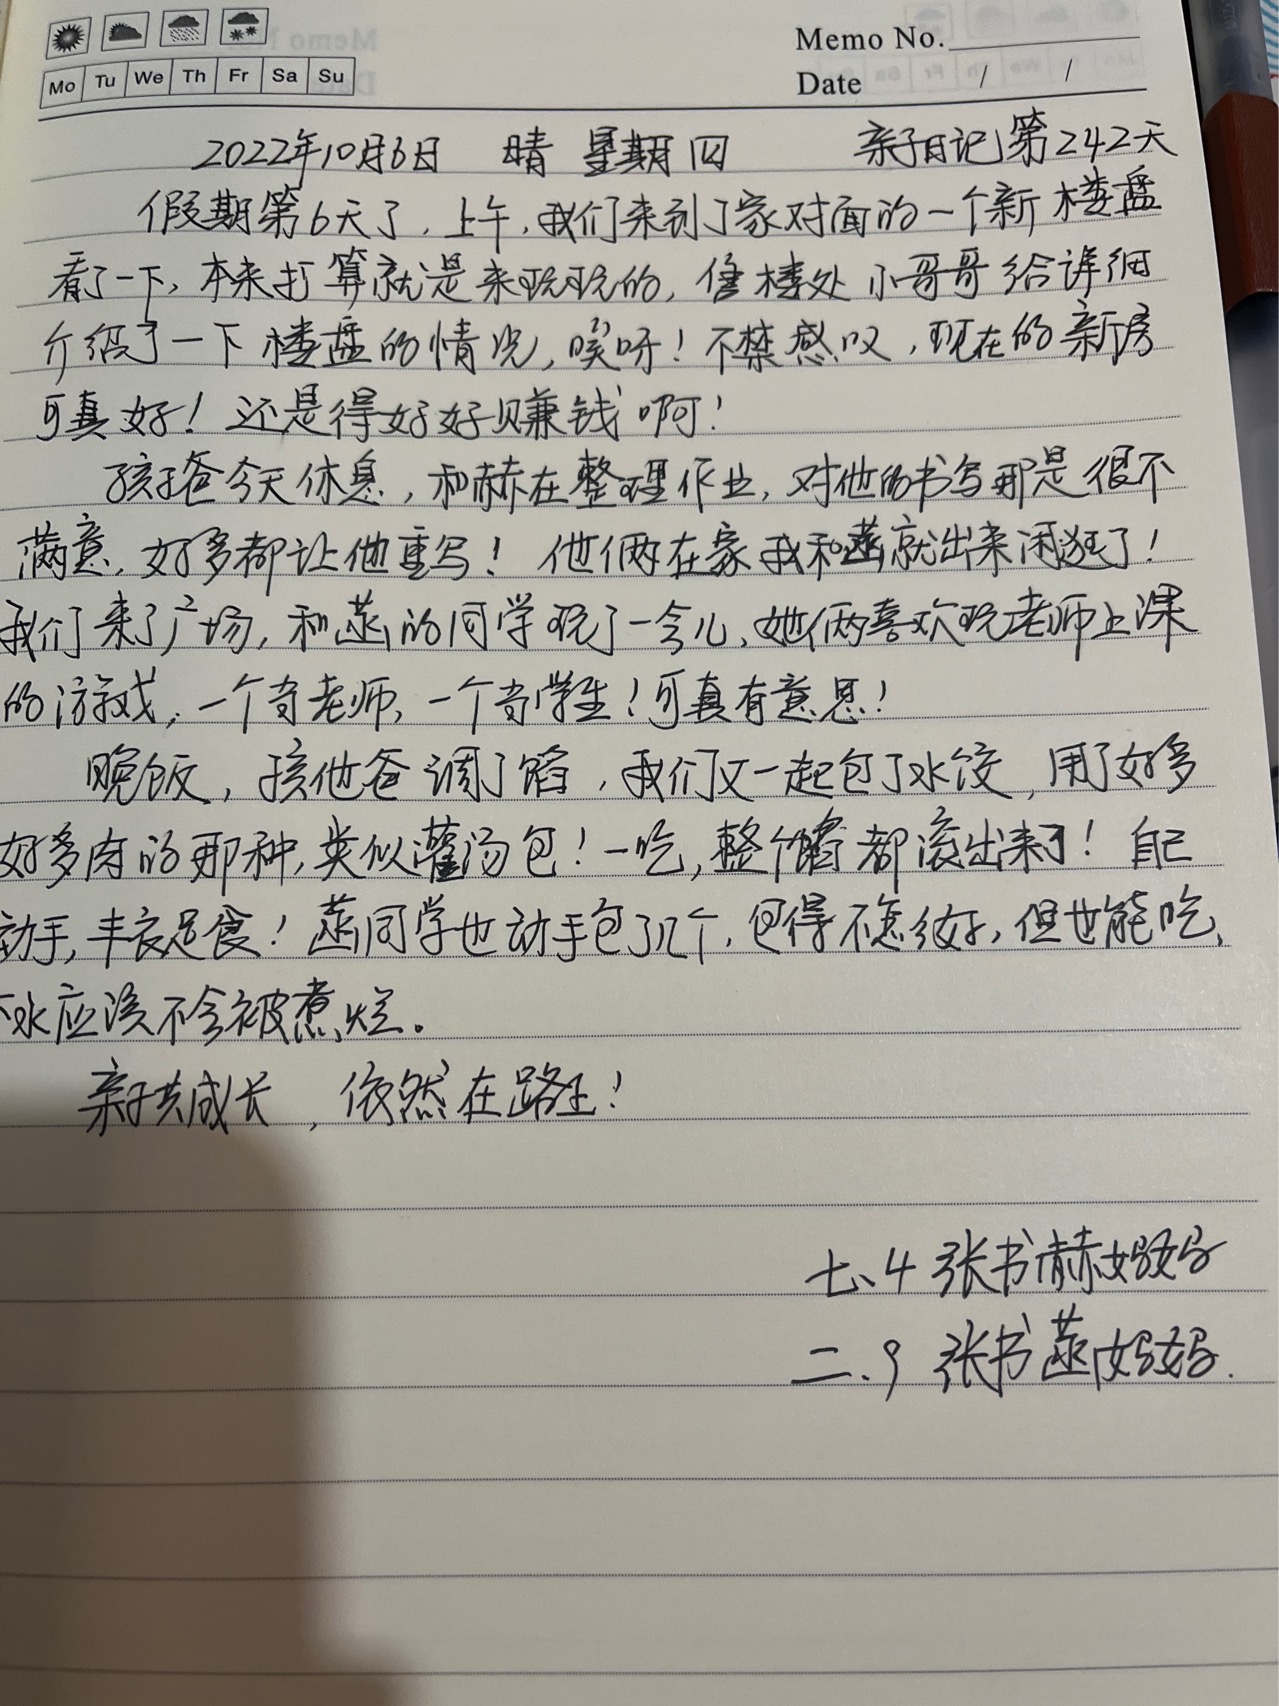 Memo No.
Mo Tu We Th Fr Sa Su
Date / /
2022年10月6日 晴 星期四 亲子日记第242天
假期第6天了，上午，我们来到了家对面的一个新楼盘
看了一下，本来打算就是来玩玩的，售楼处小哥哥给详细
介绍了一下楼盘的情况，哎呀！不禁感叹，现在的新房
可真好！还是得好好赚钱啊！
孩子爸今天休息，和赫在整理作业，对他的书写那是很不
满意，好多都让他重写！他俩在家我和菡就出来闲逛了！
我们来了广场，和菡的同学玩了一会儿，她俩喜欢玩老师上课
的游戏，一个当老师，一个当学生！可真有意思！
晚饭，孩他爸调了馅，我们又一起包了水饺，用了好多
好多肉的那种，类似灌汤包！一吃，整个馅都滚出来了！自己
动手，丰衣足食！菡同学也动手包了几个，包得不怎么好，但也能吃，
下水应该不会被煮烂。
亲子共成长，依然在路上！
七、4 张书赫妈妈
二、9 张书菡妈妈.